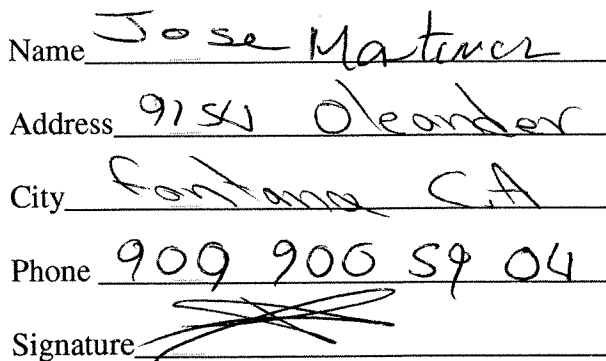 Name Jose Martinez
Address 9154 Oleander
City Fontana CA
Phone 909 900 59 04
Signature